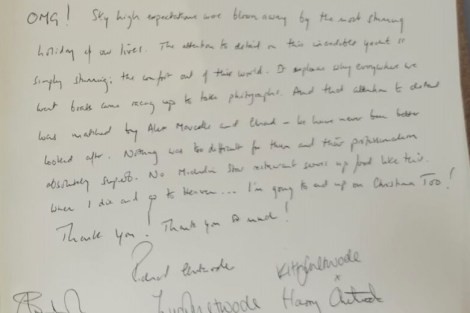 OMG! Sky high expectations were blown away by the most stunning
holiday of our lives. The attention to detail on this incredible yacht is
simply stunning; the comfort out of this world. It explains why everywhere we
went boats came racing up to take photographs. And that attention to detail
was matched by Alex Marcelle and - we have never been better
looked after. Nothing was too difficult for them and their professionalism
absolutely superb. No Michelin Star restaurant serves up food like this.
When I die and go to Heaven... I'm going to end up on Christina Too!
Thank you! Thank you so much!
Kitty
Harry